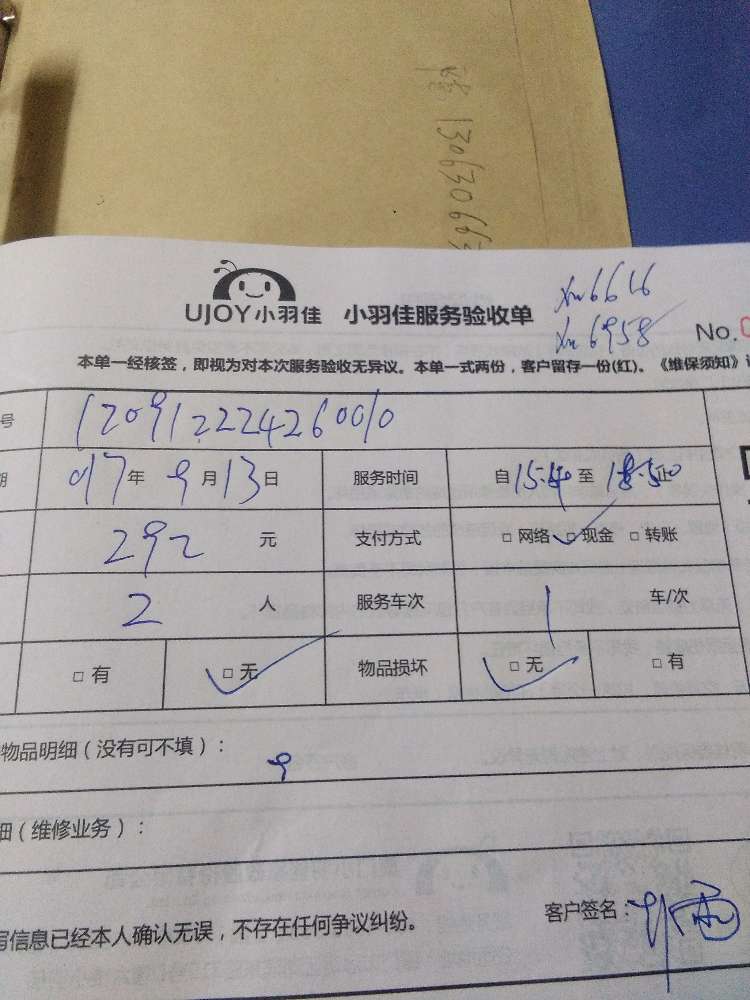 130630663
xm6616
xm6958
UJOY小羽佳 小羽佳服务验收单
No.0
本单一经核签，即视为对本次服务验收无异议。本单一式两份，客户留存一份(红)。《维保须知》
号 1209122244260010
期 017年9月13日 服务时间 自15:40至18:50止
292元 支付方式 □网络 □现金 □转账
2人 服务车次 1车/次
□有 □无 物品损坏 □无 □有
物品明细（没有可不填）：
细（维修业务）：
写信息已经本人确认无误，不存在任何争议纠纷。
客户签名：